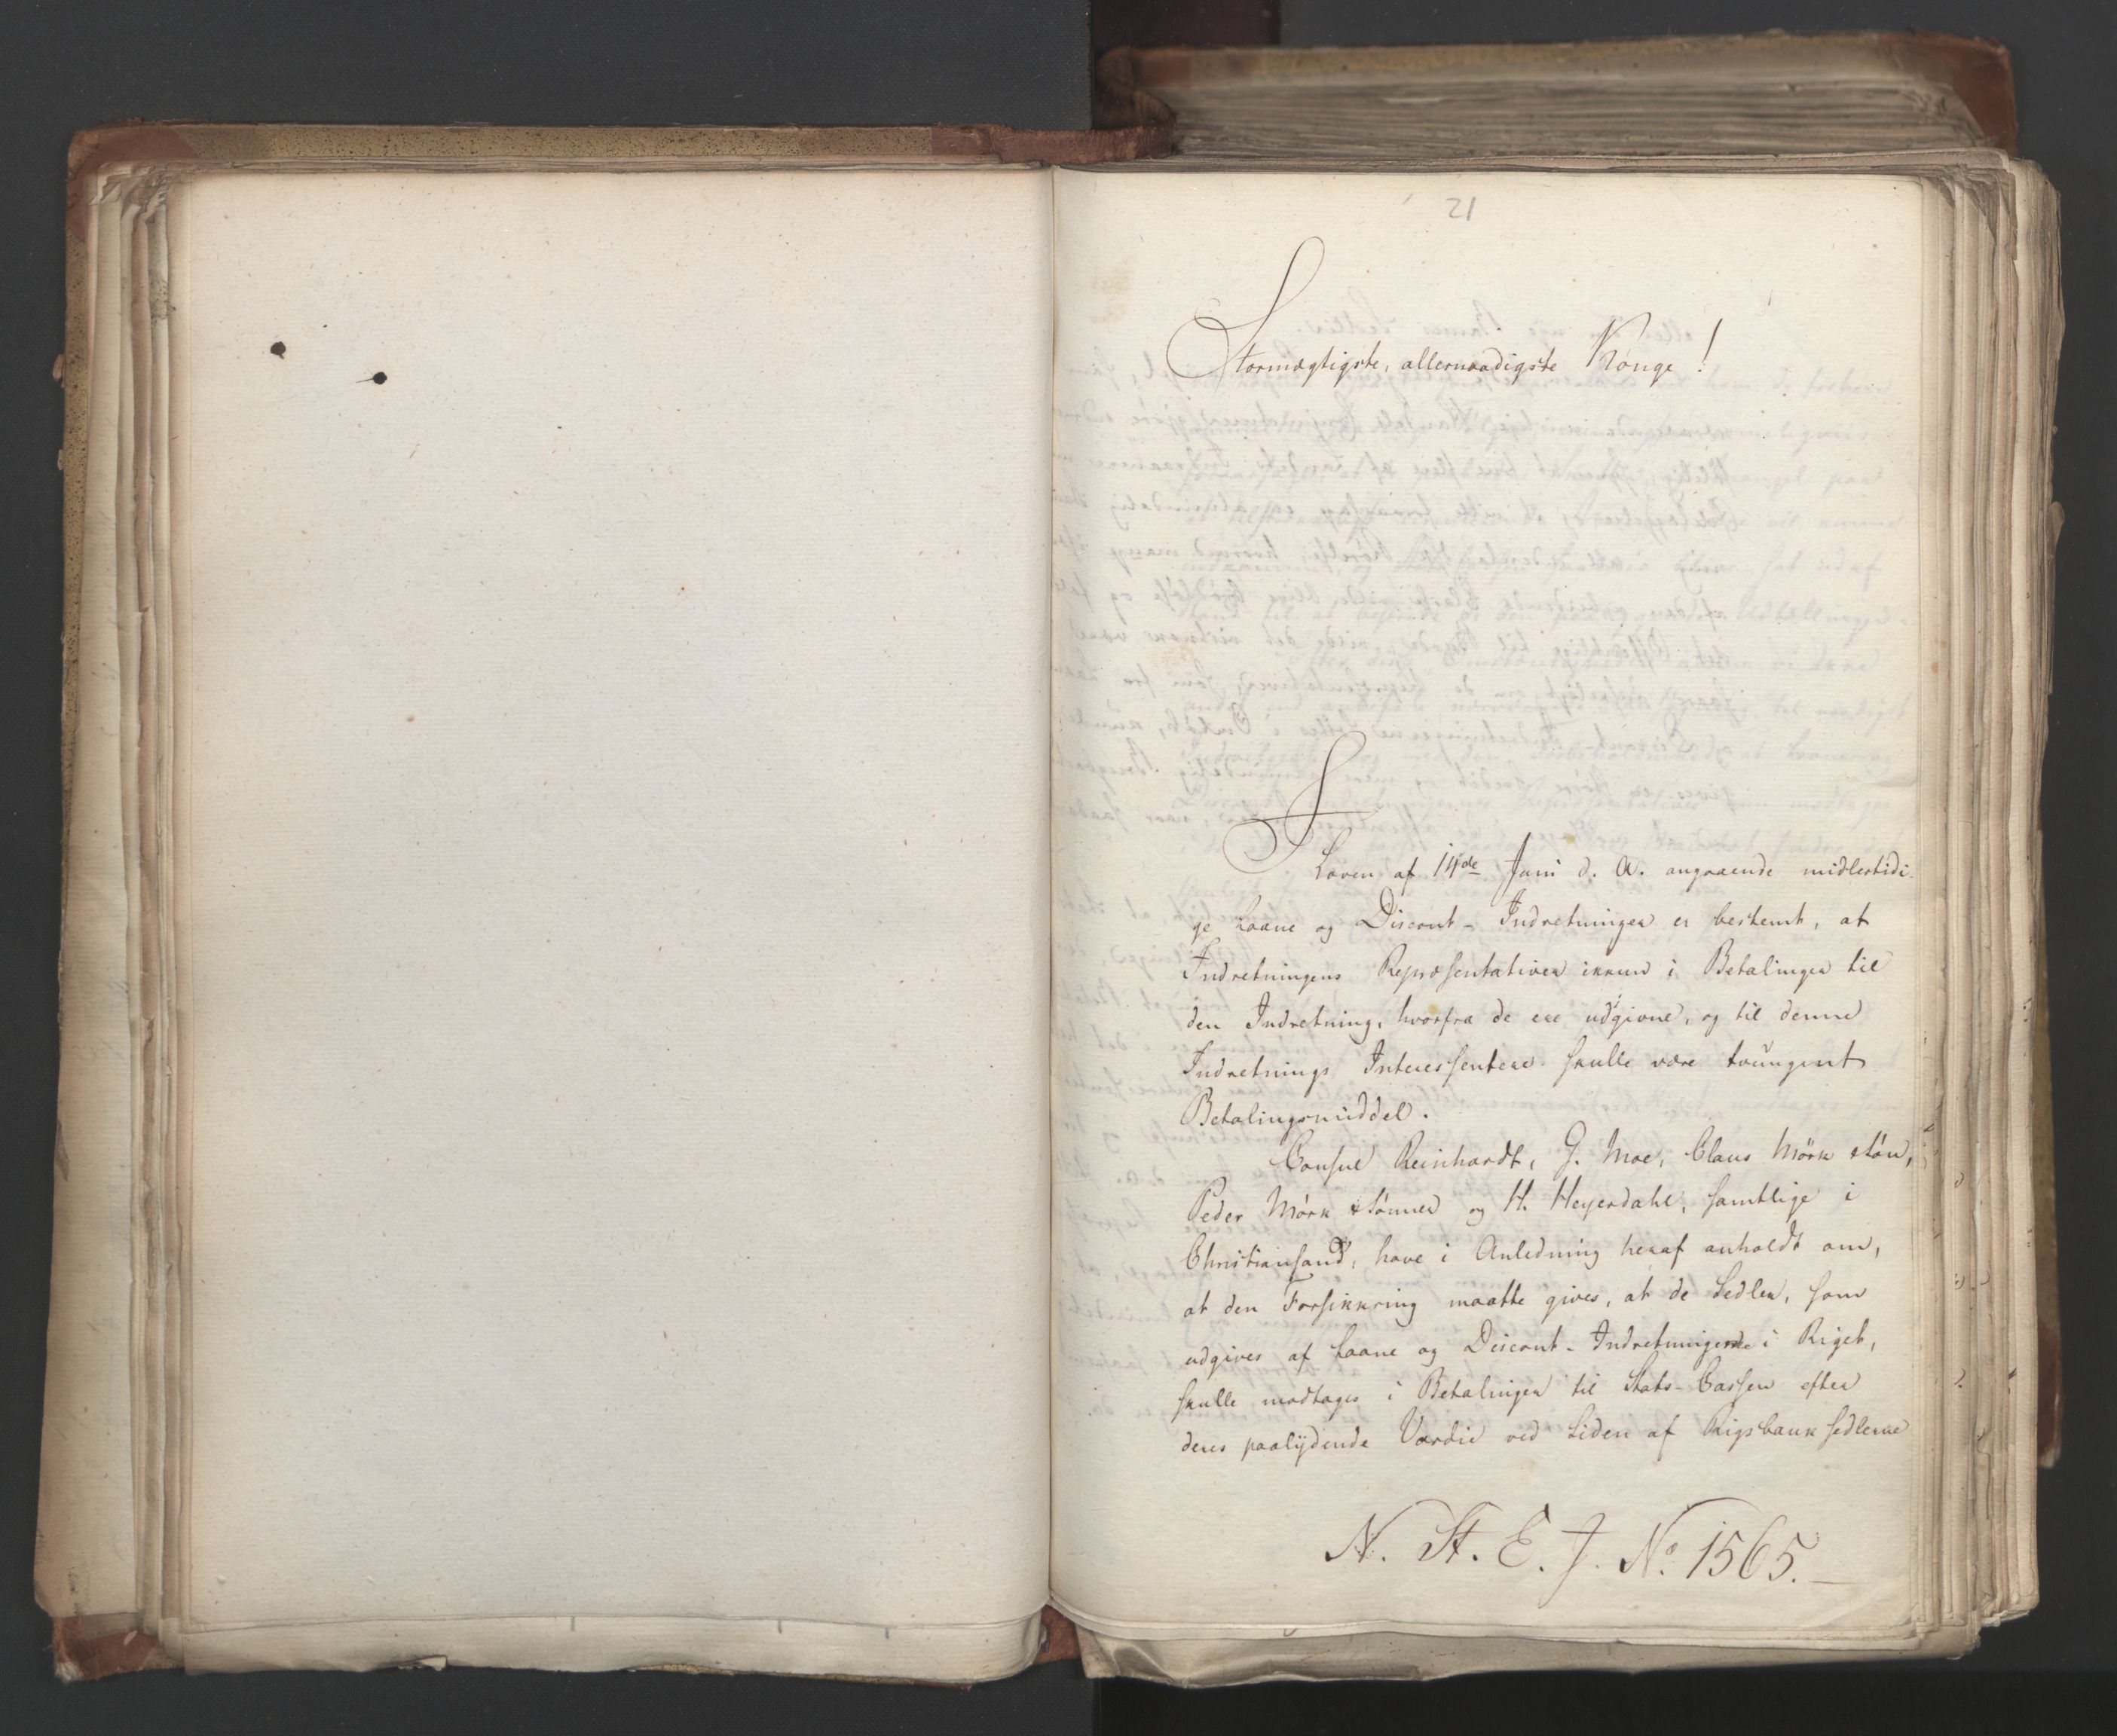 21
Stormægtigste, allernaadigste Konge!
I
Loven af 14de Juni d. A. angaaende midlertidi-
ge Laane og Discont-Indretninger er bestemt, at
Indretningens Repræsentativer ikkun i Betalinger til
den Indretning, hvorfra de ere udgivne, og til denne
Indretnings Interessentere skulle være tvungent
Betalingsmiddel.
Consul Reinhardt, G. Moe, Claus Mörk & Sön,
Peder Mörk & Sönner og H. Heyerdahl, samtlige i
Christiansand, have i Anledning heraf anholdt om,
at den Forsikkring maatte gives, at de Sedler, som
udgives af Laane og Discont-Indretningerne i Riget,
skulle modtages i Betalinger til Stats-Cassen efter
deres paalydende Værdie ved Siden af Rigsbanksedlerne
N. St. E. J. No. 1565.